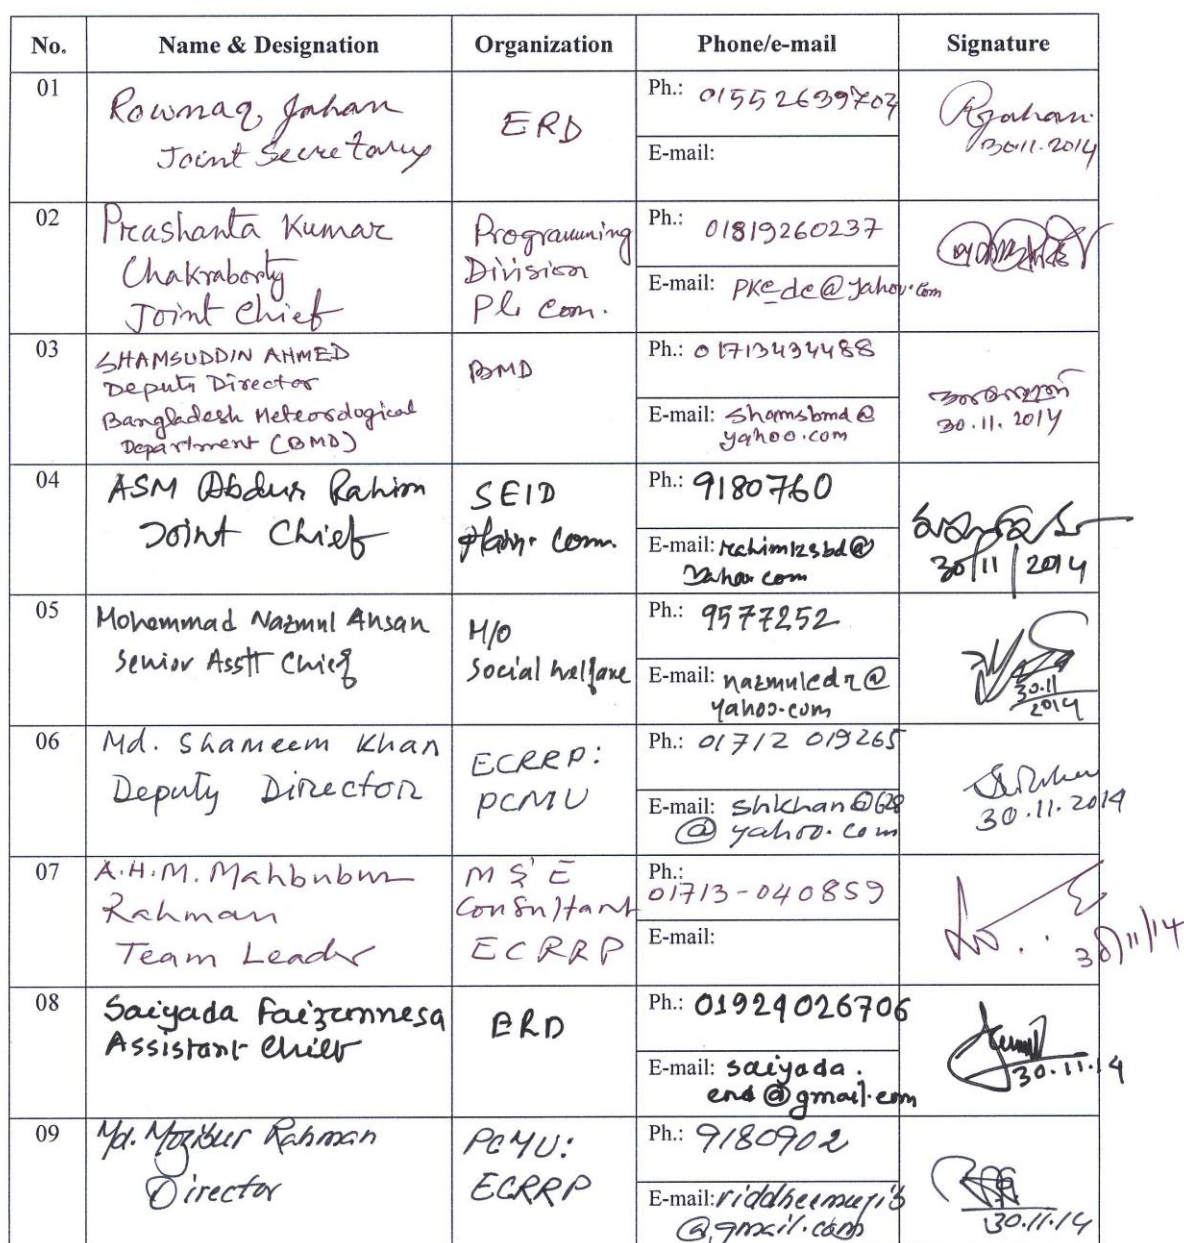 No. Name & Designation Organization Phone/e-mail Signature
01
Rownaq Jahan
Joint Secretary
ERD
Ph.: 01552639703
E-mail:
RJahan
30.11.2014
02
Prashanta Kumar
Chakraborty
Joint Chief
Programming
Division
Pl. Com.
Ph.: 01819260237
E-mail: pkc_dc@yahoo.com
03
SHAMSUDDIN AHMED
Deputy Director
Bangladesh Meteorological
Department (BMD)
BMD
Ph.: 01713434488
E-mail: shamsbmd@
yahoo.com
30.11.2014
04
ASM Abdur Rahim
Joint Chief
SEID
Plan. Comm.
Ph.: 9180760
E-mail: rahim12sbd@
Yahoo.com
30/11/2014
05
Mohammad Nazmul Ahsan
Senior Asstt Chief
M/O
Social Welfare
Ph.: 9577252
E-mail: nazmuledr@
yahoo.com
30.11
2014
06
Md. Shameem Khan
Deputy Director
ECRRP:
PCMU
Ph.: 01712 019265
E-mail: shkhan0628
@yahoo.com
30.11.2014
07
A.H.M. Mahbubur
Rahman
Team Leader
M & E
Consultant
ECRRP
Ph.:
01713-040859
E-mail:
30/11/14
08
Saiyada Faizunnesa
Assistant Chief
ERD
Ph.: 01924026706
E-mail: saiyada.
erd@gmail.com
30.11.14
09
Md. Mozibur Rahman
Director
PCMU:
ECRRP
Ph.: 9180902
E-mail: riddheemujib
@gmail.com
30.11.14